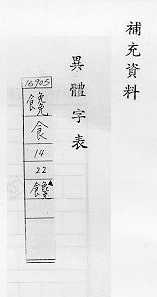 補充資料
異體字表
16905
食
14
22